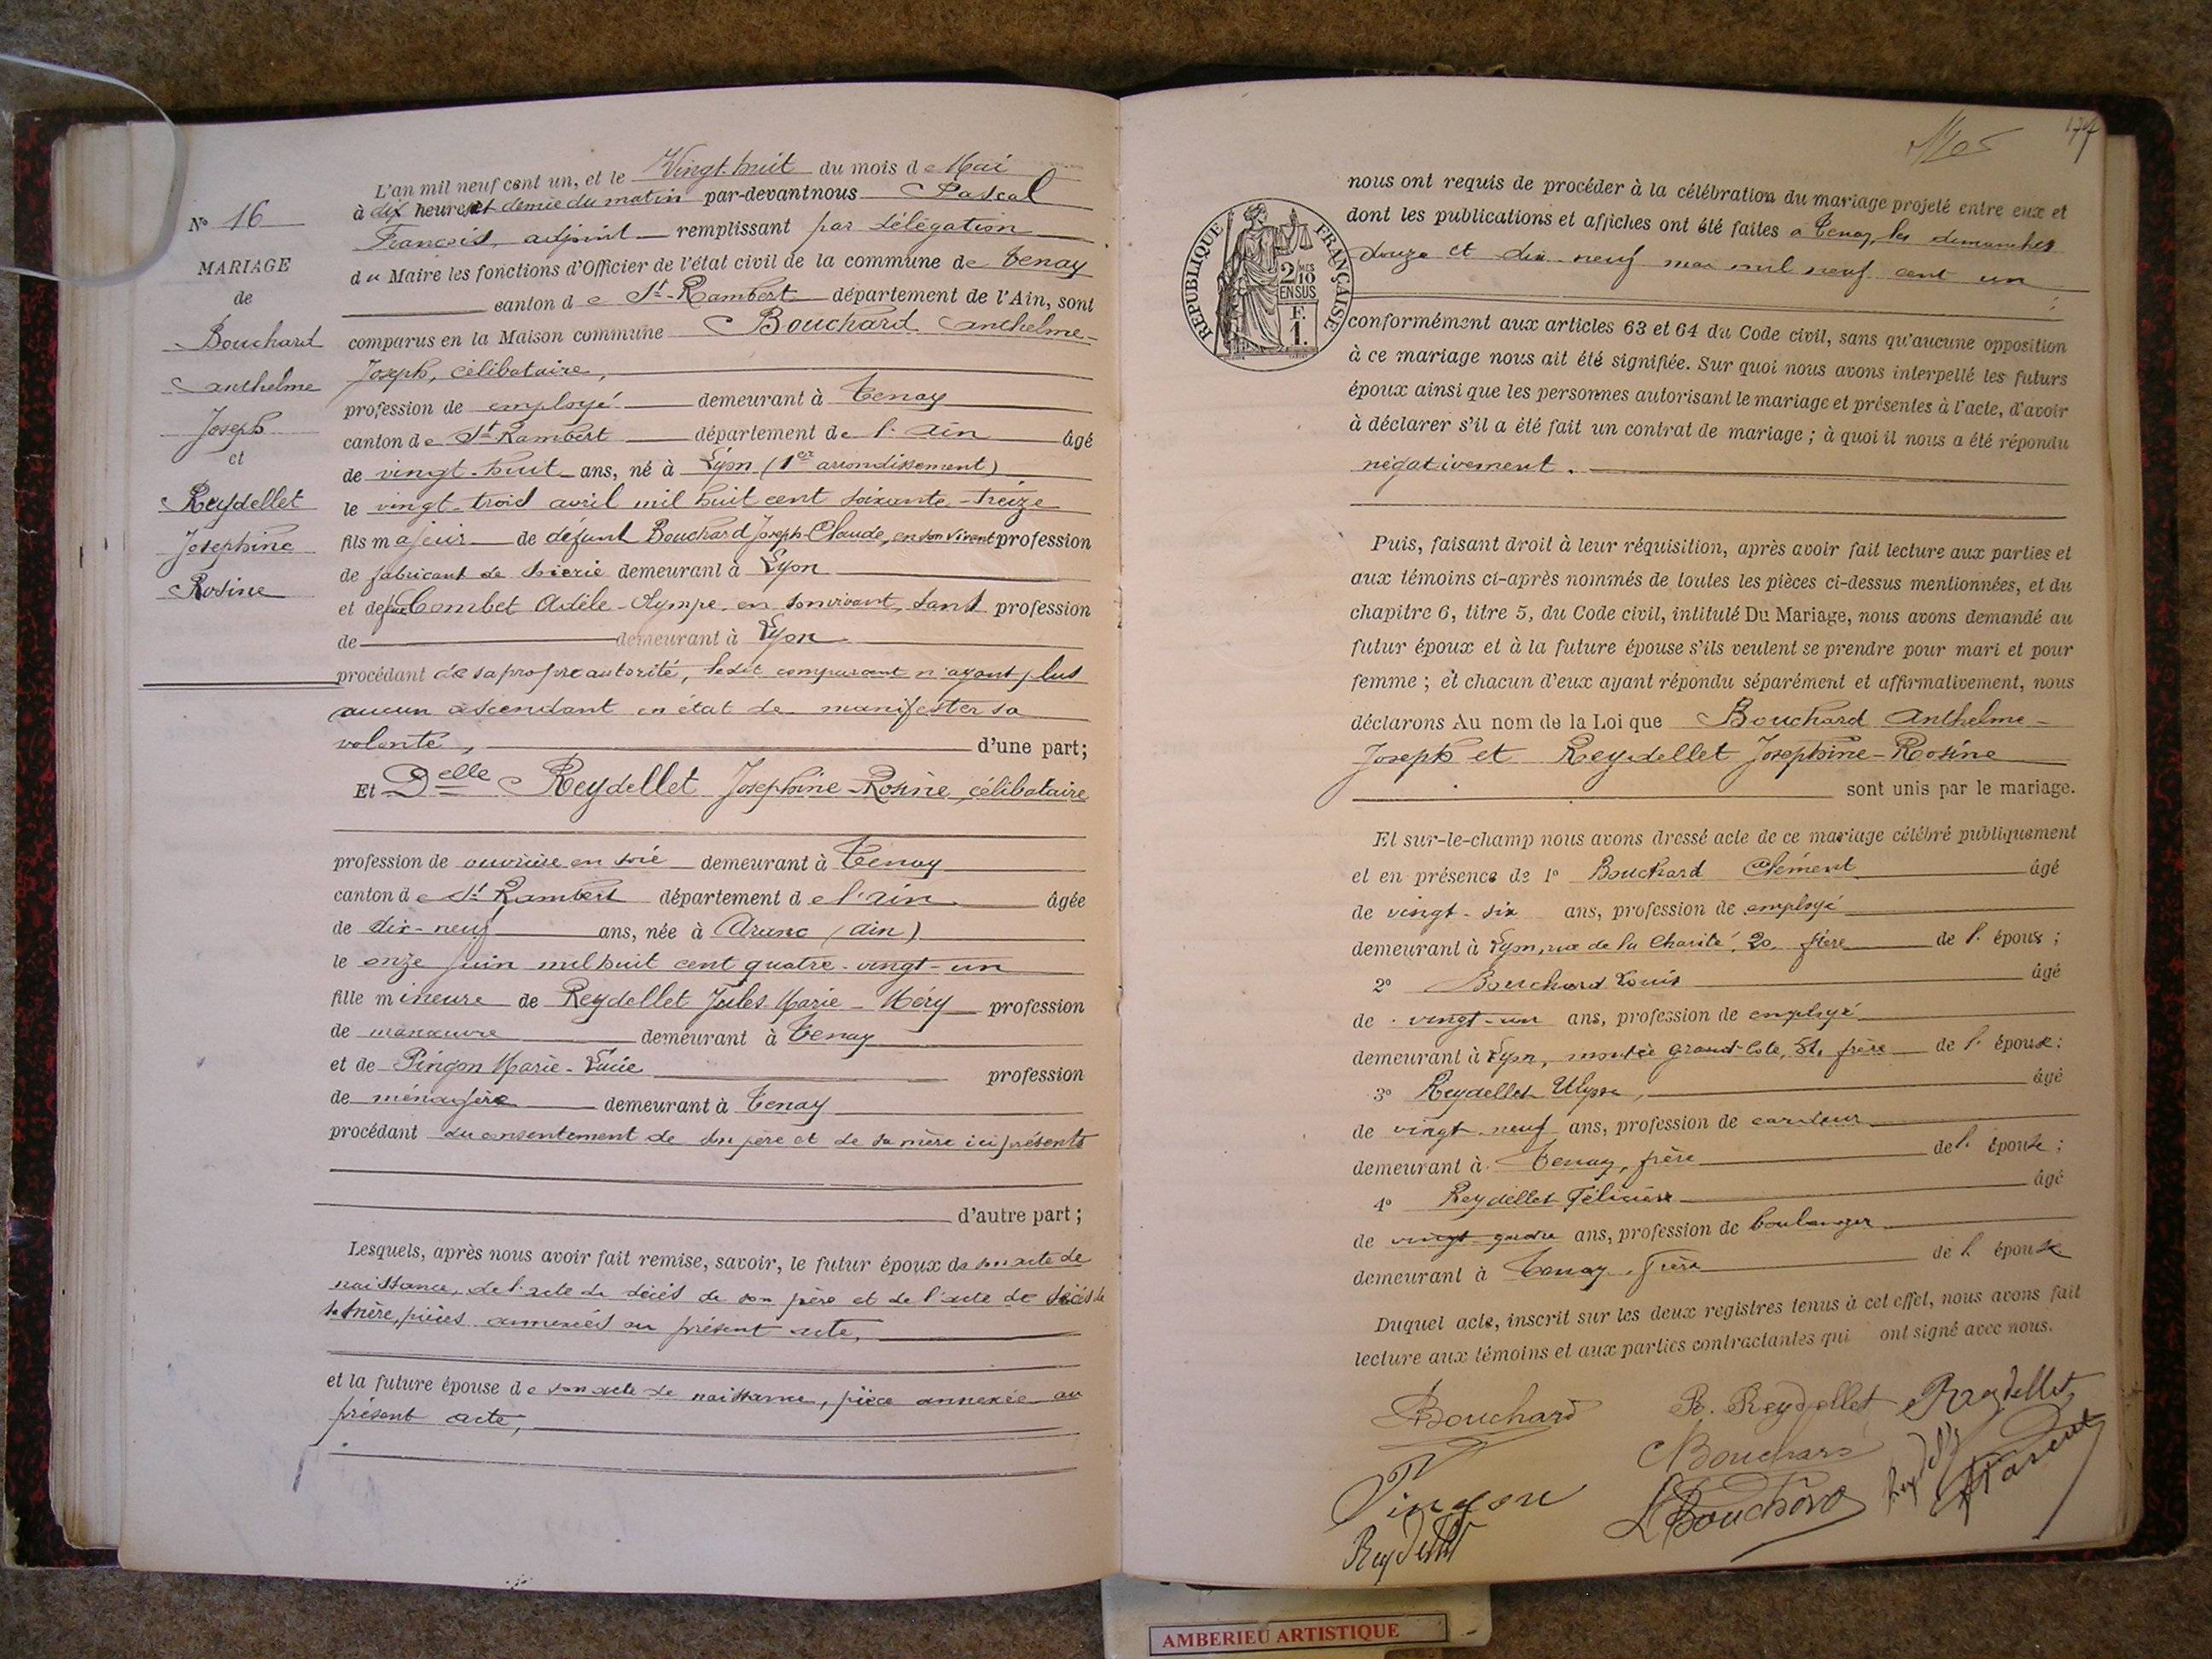 N° 16
MARIAGE
de
Bouchard
Anthelme
Joseph
et
Reydellet
Josephine
Rosine
L'an mil neuf cent un, et le Vingt-huit du mois de Mai
à dix heures et demie du matin par-devant nous Pascal
François, adjoint remplissant par délégation
du Maire les fonctions d'Officier de l'état civil de la commune de Tenay
canton de St-Rambert département de l'Ain, sont
comparus en la Maison commune Bouchard Anthelme-
Joseph, célibataire,
profession de employé demeurant à Tenay
canton de St Rambert département de l'Ain âgé
de vingt-huit ans, né à Lyon (1er arrondissement)
le vingt-trois avril mil huit cent soixante-treize
fils majeur de défunt Bouchard Joseph-Claude, en son vivant profession
de fabricant de soierie demeurant à Lyon
et de Combet Adèle-Olympe, en son vivant, sans profession
de demeurant à Lyon
procédant de sa propre autorité, ledit comparant n'ayant plus
aucun ascendant en état de manifester sa
volonté, d'une part;
Et Delle Reydellet Josephine-Rosine, célibataire
profession de ouvrière en soie demeurant à Tenay
canton de St Rambert département de l'Ain âgée
de dix-neuf ans, née à Aranc (Ain)
le onze juin mil huit cent quatre-vingt-un
fille mineure de Reydellet Jules Marie-Méry profession
de manœuvre demeurant à Tenay
et de Pingon Marie-Lucie profession
de ménagère demeurant à Tenay
procédant du consentement de son père et de sa mère ici présents
d'autre part;
Lesquels, après nous avoir fait remise, savoir, le futur époux de son acte de
naissance, de l'acte de décès de son père et de l'acte de décès de
sa mère, pièces annexées au présent acte,
et la future épouse de son acte de naissance, pièce annexée au
présent acte,
177
nous ont requis de procéder à la célébration du mariage projeté entre eux et
dont les publications et affiches ont été faites à Tenay, les dimanches
douze et dix-neuf mai mil neuf cent un
RÉPUBLIQUE FRANÇAISE
2 10
EN SUS
F.
1.
conformément aux articles 63 et 64 du Code civil, sans qu'aucune opposition
à ce mariage nous ait été signifiée. Sur quoi nous avons interpellé les futurs
époux ainsi que les personnes autorisant le mariage et présentes à l'acte, d'avoir
à déclarer s'il a été fait un contrat de mariage; à quoi il nous a été répondu
négativement.
Puis, faisant droit à leur réquisition, après avoir fait lecture aux parties et
aux témoins ci-après nommés de toutes les pièces ci-dessus mentionnées, et du
chapitre 6, titre 5, du Code civil, intitulé Du Mariage, nous avons demandé au
futur époux et à la future épouse s'ils veulent se prendre pour mari et pour
femme; et chacun d'eux ayant répondu séparément et affirmativement, nous
déclarons Au nom de la Loi que Bouchard Anthelme-
Joseph et Reydellet Josephine-Rosine
sont unis par le mariage.
Et sur-le-champ nous avons dressé acte de ce mariage célébré publiquement
et en présence de 1° Bouchard Clément âgé
de vingt-six ans, profession de employé
demeurant à Lyon, rue de la Charité, 20, frère de l'époux;
2° Bouchard Louis âgé
de vingt-un ans, profession de employé
demeurant à Lyon, montée Grand-Côte, frère de l'époux;
3° Reydellet Ulysse, âgé
de vingt-neuf ans, profession de cardeur
demeurant à Tenay, frère de l'épouse;
4° Reydellet Félicien âgé
de vingt-quatre ans, profession de boulanger
demeurant à Tenay, frère de l'épouse
Duquel acte, inscrit sur les deux registres tenus à cet effet, nous avons fait
lecture aux témoins et aux parties contractantes qui ont signé avec nous.
Bouchard R. Reydellet Reydellet
Bouchard
Pingon L Bouchard Reydellet Pascal
Reydellet
AMBERIEU ARTISTIQUE